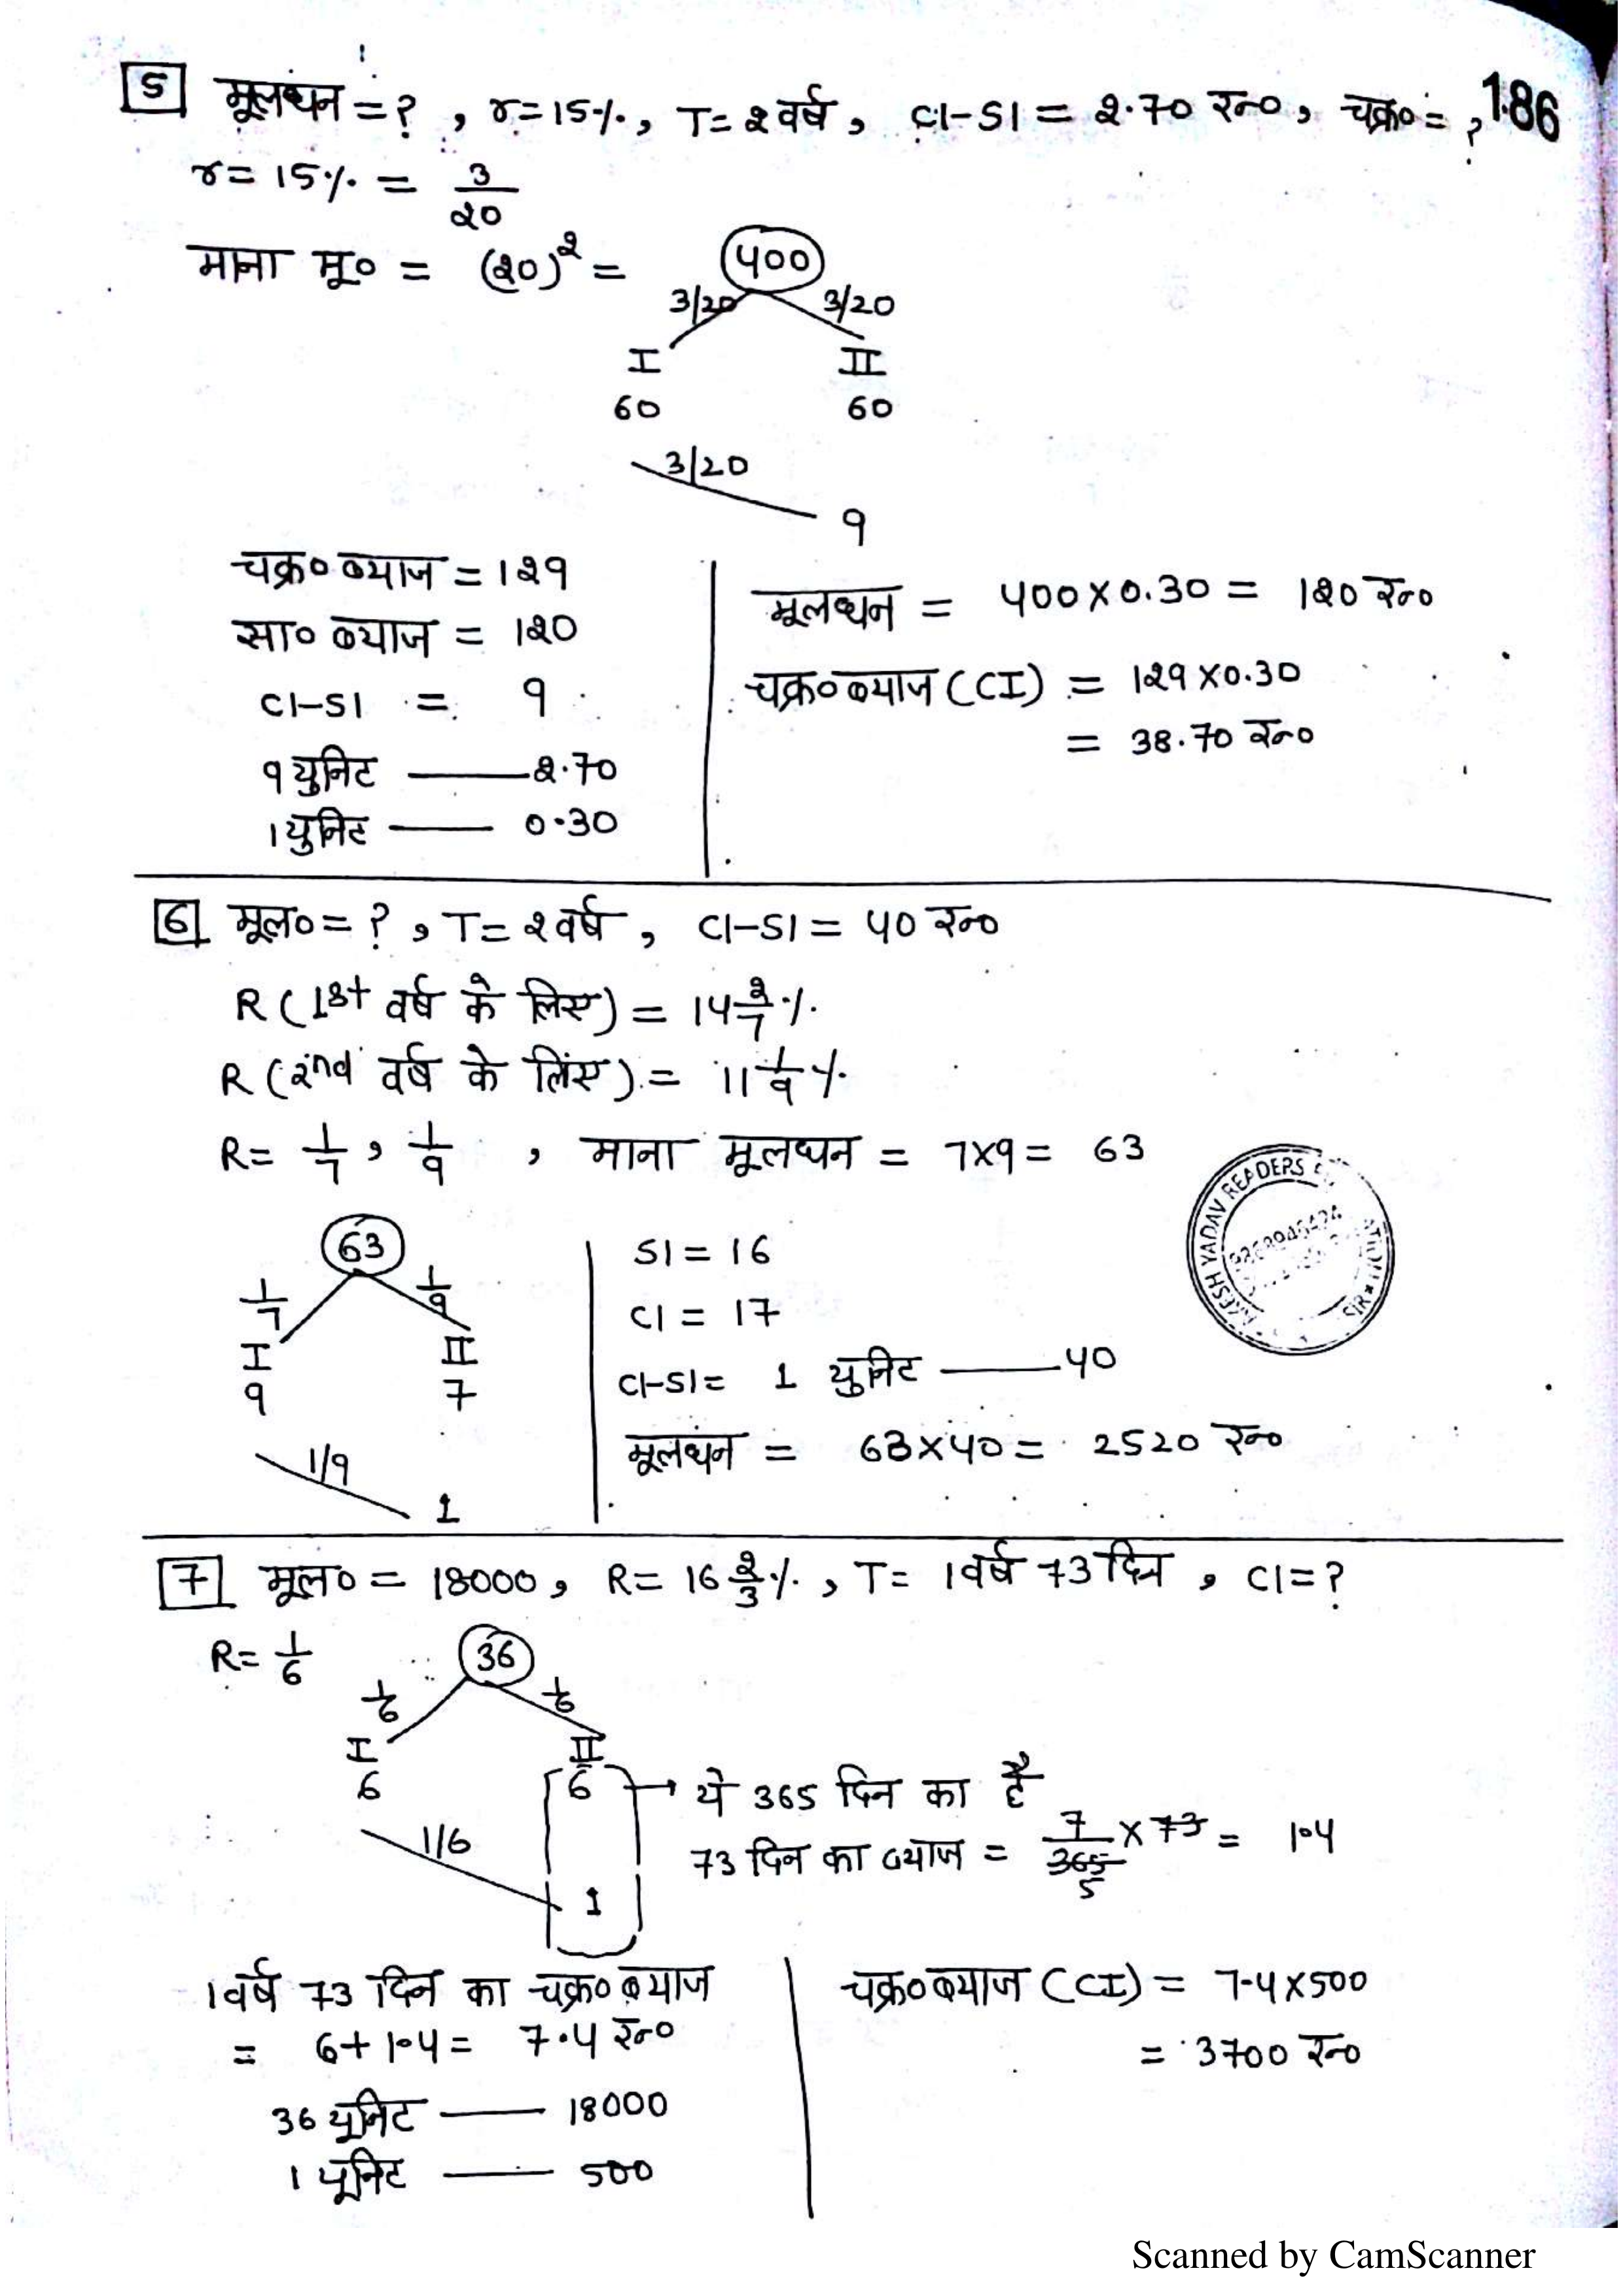 186
5 मूलधन = ? , r = 15%, T = २ वर्ष, CI-SI = २.70 रु०, चक्र० = ?
r = 15% = 3/२0
माना मू० = (२0)^२ = 400
3/20 3/20
I II
60 60
3/20
9
चक्र० ब्याज = 1२9
सा० ब्याज = 1२0
CI-SI = 9
9 युनिट — २.70
1 युनिट — 0.30
मूलधन = 400 x 0.30 = 1२0 रु०
चक्र० ब्याज (CI) = 1२9 x 0.30
= 38.70 रु०
6 मूल० = ? , T = २ वर्ष, CI-SI = 40 रु०
R (1st वर्ष के लिए) = 14 २/7 %
R (२nd वर्ष के लिए) = 11 1/9 %
R = 1/7 , 1/9 , माना मूलधन = 7x9 = 63
63
1/7 1/9
I II
9 7
1/9
1
SI = 16
CI = 17
CI-SI = 1 युनिट — 40
मूलधन = 63 x 40 = 2520 रु०
YADAV READERS
SIR
7 मूल० = 18000, R = 16 २/3 %, T = 1 वर्ष 73 दिन, CI = ?
R = 1/6
36
1/6 1/6
I II
6 6 → ये 365 दिन का है
1/6
1
73 दिन का ब्याज = 7/365 x 73 = 1.4
5
1 वर्ष 73 दिन का चक्र० ब्याज
= 6 + 1.4 = 7.4 रु०
36 यूनिट — 18000
1 यूनिट — 500
चक्र० ब्याज (CI) = 7.4 x 500
= 3700 रु०
Scanned by CamScanner